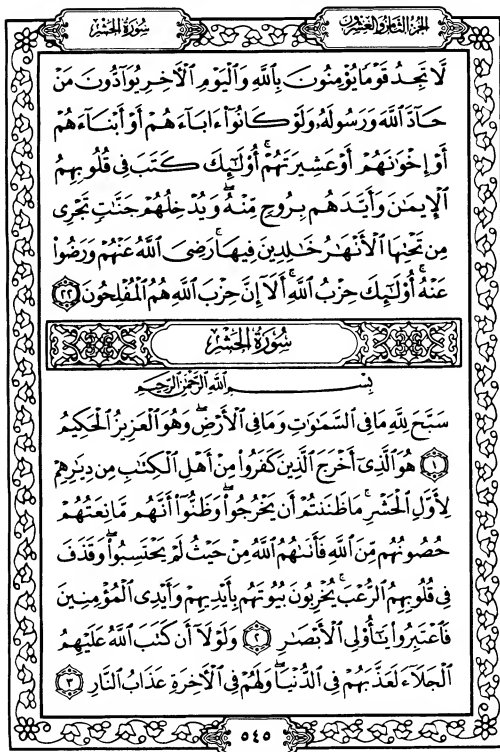 سُورَةُ الحَشْرِ
الجُزْءُ الثَّامِنُ وَالعِشْرُونَ
لَّا تَجِدُ قَوْمًا يُؤْمِنُونَ بِاللَّهِ وَالْيَوْمِ الْأَخِرِ يُوَآدُّونَ مَنْ
حَآدَّ اللَّهَ وَرَسُولَهُۥ وَلَوْ كَانُوٓا۟ ءَابَآءَهُمْ أَوْ أَبْنَآءَهُمْ
أَوْ إِخْوَٰنَهُمْ أَوْ عَشِيرَتَهُمْ ۚ أُو۟لَٰٓئِكَ كَتَبَ فِى قُلُوبِهِمُ
الْإِيمَٰنَ وَأَيَّدَهُم بِرُوحٍ مِّنْهُ ۖ وَيُدْخِلُهُمْ جَنَّٰتٍ تَجْرِى
مِن تَحْتِهَا الْأَنْهَٰرُ خَٰلِدِينَ فِيهَا ۚ رَضِىَ اللَّهُ عَنْهُمْ وَرَضُوا۟
عَنْهُ ۚ أُو۟لَٰٓئِكَ حِزْبُ اللَّهِ ۚ أَلَآ إِنَّ حِزْبَ اللَّهِ هُمُ الْمُفْلِحُونَ ٢٢
سُورَةُ الحَشْرِ
بِسْمِ اللَّهِ الرَّحْمَٰنِ الرَّحِيمِ
سَبَّحَ لِلَّهِ مَا فِى السَّمَٰوَٰتِ وَمَا فِى الْأَرْضِ ۖ وَهُوَ الْعَزِيزُ الْحَكِيمُ
١ هُوَ الَّذِىٓ أَخْرَجَ الَّذِينَ كَفَرُوا۟ مِنْ أَهْلِ الْكِتَٰبِ مِن دِيَٰرِهِمْ
لِأَوَّلِ الْحَشْرِ ۚ مَا ظَنَنتُمْ أَن يَخْرُجُوا۟ ۖ وَظَنُّوٓا۟ أَنَّهُم مَّانِعَتُهُمْ
حُصُونُهُم مِّنَ اللَّهِ فَأَتَىٰهُمُ اللَّهُ مِنْ حَيْثُ لَمْ يَحْتَسِبُوا۟ ۖ وَقَذَفَ
فِى قُلُوبِهِمُ الرُّعْبَ ۚ يُخْرِبُونَ بُيُوتَهُم بِأَيْدِيهِمْ وَأَيْدِى الْمُؤْمِنِينَ
فَاعْتَبِرُوا۟ يَٰٓأُو۟لِى الْأَبْصَٰرِ ٢ وَلَوْلَآ أَن كَتَبَ اللَّهُ عَلَيْهِمُ
الْجَلَآءَ لَعَذَّبَهُمْ فِى الدُّنْيَا ۖ وَلَهُمْ فِى الْأَخِرَةِ عَذَابُ النَّارِ ٣
٥٤٥